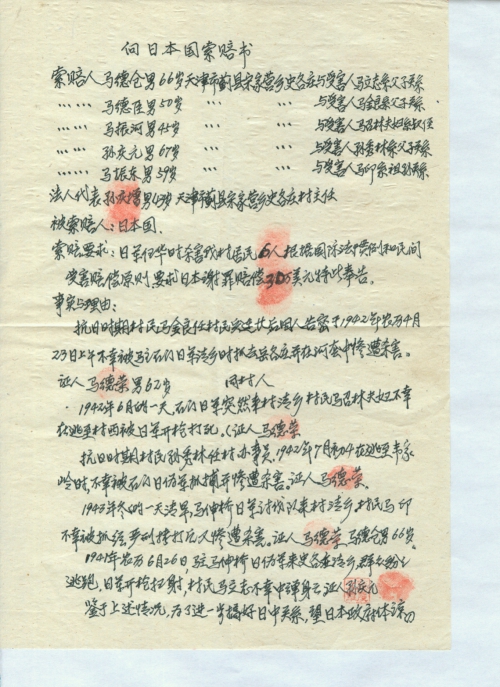 向日本国索赔书
索赔人 马德仓 男66岁 天津市蓟县宋家营乡史各庄 与受害人马立志系父子关系
〃 〃 〃 马德 男50岁 与受害人马金良系父子关系
〃 〃 〃 马振河 男45岁 与受害人马召林夫妇系叔侄
〃 〃 〃 孙庆元 男67岁 与受害人孙秀林系父子关系
〃 〃 〃 马振东 男39岁 与受害人马印系祖孙关系
法人代表 孙 男 岁 天津市蓟县宋家营乡史各庄村主任
被索赔人：日本国。
索赔要求：日军侵华时杀害我村居民6人根据国际法惯例和民间
受害赔偿原则要求日本谢罪赔偿30万美元特此奉告。
事实与理由：
抗日时期村民马金良任村民 因人告密于1942年农历4月
23日上午不幸被马 日军清乡时抓去 各庄并在河 中惨遭杀害。
证人 马德荣 男62岁 同村人
1942年6月的一天, 日军突然来村清乡 村民马召林夫妇不幸
在逃至村西被日军开枪打死。(证人 马德荣
抗日时期村民孙秀林任村办事员, 1942年7月初4在逃至韦家
岭时, 不幸被 日伪军抓捕并惨遭杀害。证人 马德荣
1943年冬的一天清早, 马伸桥日军讨伐队来村清乡, 村民马印
不幸被抓 拷打后又惨遭杀害。证人 马德荣 马德仓 男66岁。
1941年农历6月26日 驻马伸桥日伪军来史各庄清乡, 群众纷纷
逃跑, 日军开枪扫射, 村民马立志不幸中弹身亡 证人 孙庆元
鉴于上述情况, 为了进一步搞好日中关系, 望日本政府体谅